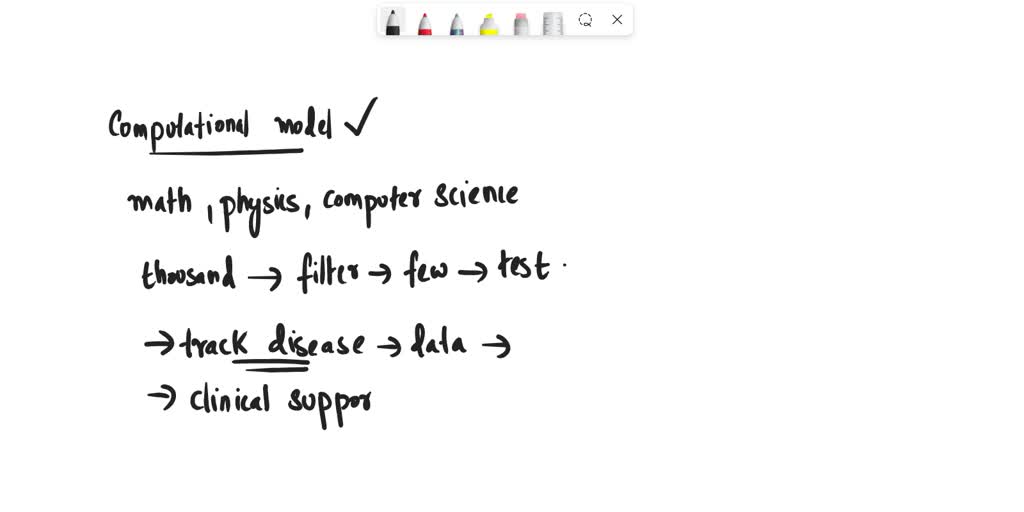 Computational model ✓
math, physics, computer science
thousand → filter → few → test.
→ track disease → data →
→ clinical suppor